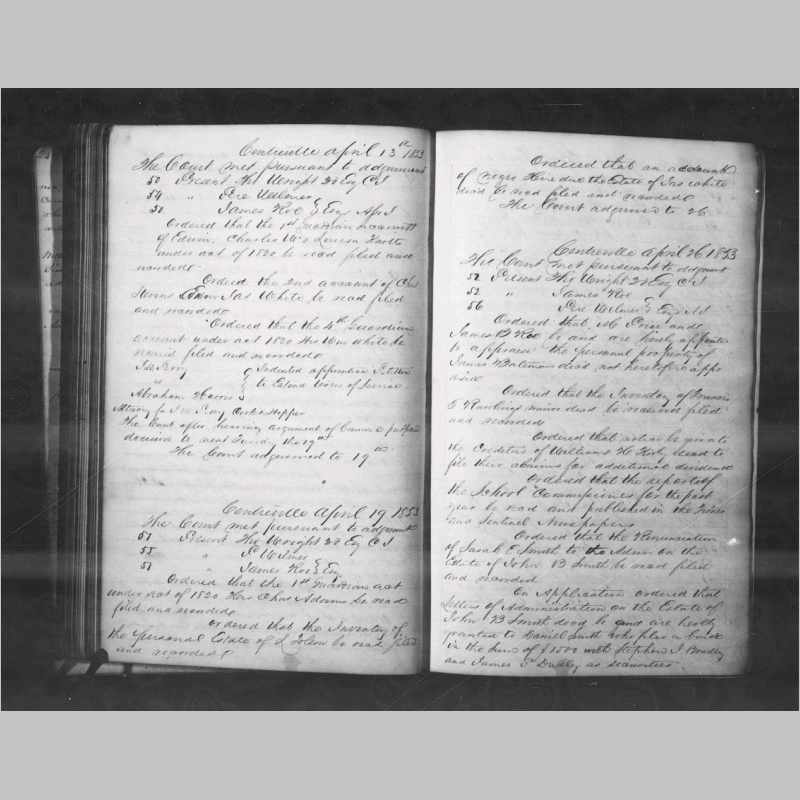 Centreville April 12th 1853
The Court met pursuant to adgournment
50 Present Thos Wright 2d Esq C J
54 " Pere Wilmer
50 James Roe } Esq
Ordered that the 1st account
of Edwin, Charles Louisa
under act of 1820 be read filed and
recorded
Ordered the 2nd account of Chs
Jas White be read filed
and recorded
Ordered that the 4th Guardian
account under act 1820 Wm White be
read filed and recorded
to Extend Term of Service
Abraham
Attorney for
The Court after hearing argument of
decision to next Tuesday the 19th
The Court adgourned to 19th
Centreville April 19 1853
The Court met pursuant to adgournment
51 Present Tho Wright 2d Esq C J
55 " P Wilmer
51 " James Roe } Esq
Ordered that the 1st act
under act of 1820 Chas Adams be read
filed and recorded
Ordered that the Inventory of
the personal Estate of be read filed
and recorded
Ordered that an account
of Negro Hire due the Estate of Jas White
decd be read filed and recorded
The Court adgourned to 26
Centreville April 26 1853
The Court met pursuant to adgournt
52 Present Tho Wright 2d Esq C J
52 " James Roe
56 Pere Wilmer } Esq
Ordered that Price and
James B Roe be and are hereby appointed
to appraise the personal property of
James Bateman decd not heretofore appr
aised
Ordered that the Inventory of Francis
E Rawlings decd be received filed
and recorded
Ordered that notice be given to
the Creditors of William H Kirby decd to
file their claims for additional dividend
Ordered that the report of
the School Commissioners for the past
year be read and published in the Times
and Sentinel Newspapers
Ordered that the Renunciation
of Sarah E Smith to the Admn on the
Estate of John B Smith be read filed
and recorded
On Application ordered that
letters of Administration on the Estate of
John B Smith decd be and are hereby
granted to Daniel Smith who files a bond
in the sum of $1500 with Stephen J Bradley
and James T Dudley as securities